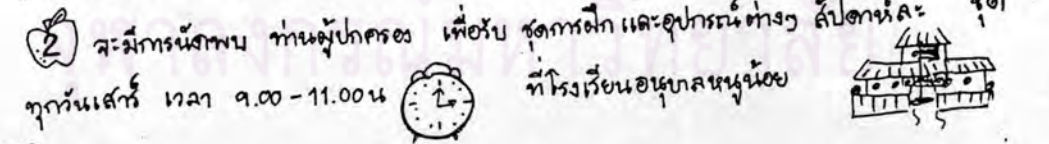 2 จะมีการนัดพบ ท่านผู้ปกครอง เพื่อรับ ชุดการฝึก และอุปกรณ์ต่างๆ สัปดาห์ละ ชุด
ทุกวันเสาร์ เวลา 9.00-11.00 น ที่โรงเรียนอนุบาลหนูน้อย